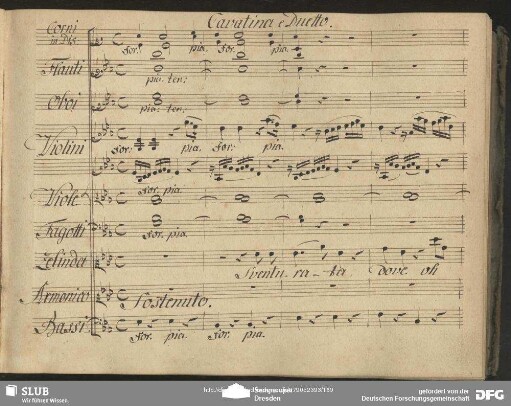 Cavatina e Duetto.
Corni
in Dis.
for: pia. for: pia.
Flauti
pia: ten:
Oboi
pia: ten:
Violini
for: pia. for: pia.
for: pia.
Viole
Fagotti
for. pia.
Zelinda
Sventu-ra-ta dove oh
Armonico
Sostenuto.
Bassi
for. pia for. pia.
SLUB
Wir führen Wissen.
Dresden
gefördert von der
Deutschen Forschungsgemeinschaft
DFG